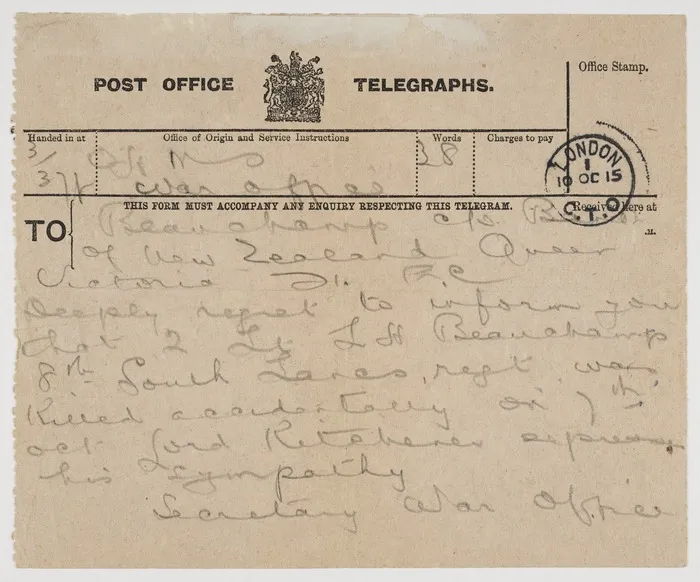 POST OFFICE TELEGRAPHS.
Office Stamp.
Handed in at
Office of Origin and Service Instructions
Words
Charges to pay
38
War Office
LONDON
1
10 OC 15
C.T.O
THIS FORM MUST ACCOMPANY ANY ENQUIRY RESPECTING THIS TELEGRAM.
Received here at
TO
Beauchamp c/o
of New Zealand Queen
Victoria St. EC
Deeply regret to inform you
that 2 Lt L H Beauchamp
8th South Lancs. regt was
killed accidentally on 7th
oct Lord Kitchener expresses
his sympathy
Secretary War Office